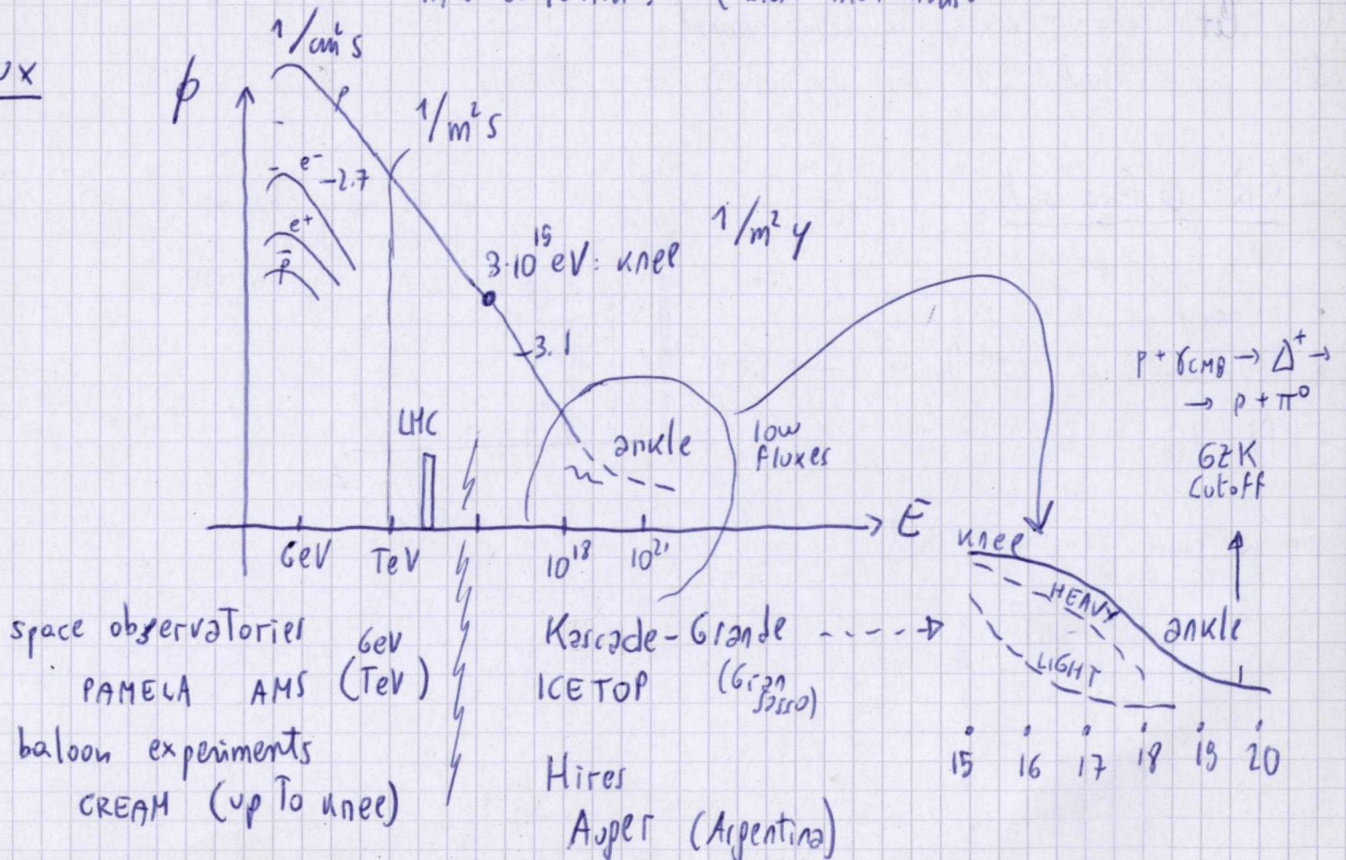 1/cm² s
ϕ
p
1/m² s
e⁻
-2.7
e⁺
p̄
3·10¹⁵ eV: knee
1/m² y
-3.1
LHC
ankle
low
fluxes
p + γCMB → Δ⁺ →
→ p + π⁰
GZK
Cutoff
E
GeV
TeV
10¹⁸
10²¹
knee
HEAVY
LIGHT
ankle
15 16 17 18 19 20
space observatories
GeV
PAMELA AMS (TeV)
baloon experiments
CREAM (up to knee)
Kascade-Grande
ICETOP (Gran
Sasso)
Hires
Auger (Argentina)